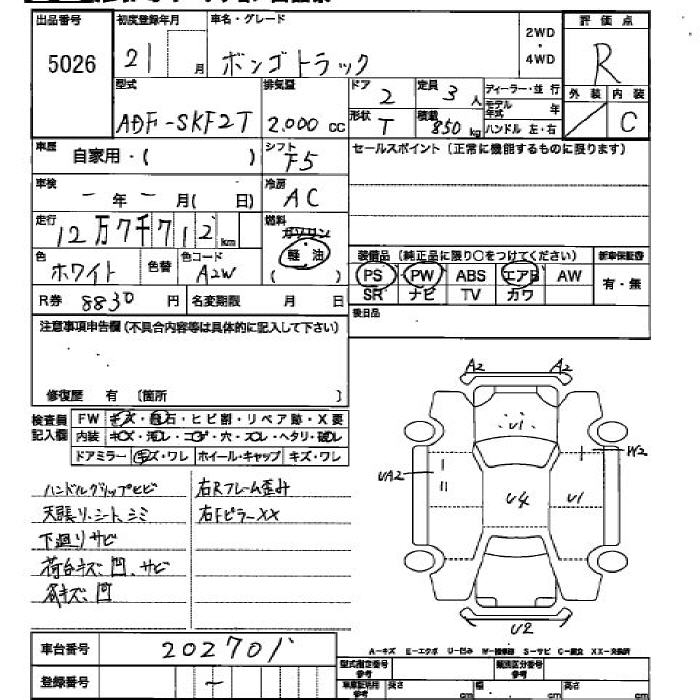 出品番号 初度登録年月 車名・グレード 2WD・4WD 評価点
5026 21 月 ボンゴトラック R
型式 排気量 ドア 定員 ディーラー・並行 外装 内装
ABF-SKF2T 2.000 cc 2 3 人 モデル年式 年 C
形状 積載 ハンドル 左・右
T 850 kg
車歴 自家用・( ) シフト F5 セールスポイント (正常に機能するものに限ります)
車検 ー 年 ー 月( 日) 冷房 AC
走行 12万7千712 km 燃料 ガソリン 軽油
色 ホワイト 色替 色コード A2W ( )
装備品 (純正品に限り○をつけてください) 新車保証書
PS PW ABS エアB AW 有・無
SR ナビ TV カワ
R券 8830 円 名変期限 月 日
後日品
注意事項申告欄 (不具合内容等は具体的に記入して下さい)
修復歴 有 (箇所 )
検査員記入欄 FW キズ・飛石・ヒビ割・リペア跡・X要
内装 キズ・汚レ・コゲ・穴・スレ・ヘタリ・破レ
ドアミラー キズ・ワレ ホイール・キャップ キズ・ワレ
ハンドルグリップヒビ 右Rフレーム歪み
天張り、シート、シミ 右FピラーXX
下廻りサビ
荷台キズ、凹、サビ
キズ、凹
A2 A2
U1
UA2 W2
U4 U1
U2
車台番号 202701
登録番号 ー
A-キズ E-エクボ U-凹み W-補修跡 S-サビ C-腐食 XX-交換済
型式指定番号 参考 類別区分番号 参考
車庫証明用 参考 長さ cm 幅 cm 高さ cm